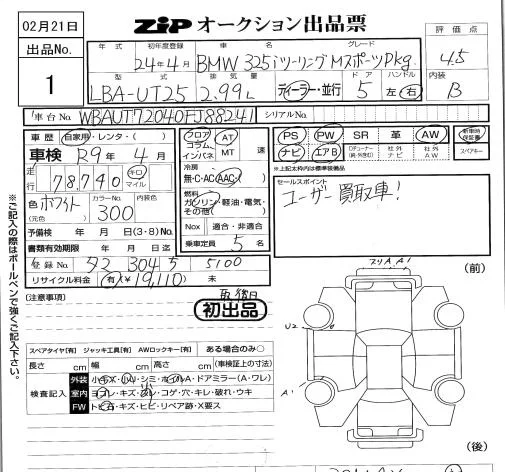 02月21日
ZIP オークション出品票
出品No.
1
年式 初年度登録 車名 グレード
24年4月 BMW 325iツーリング Mスポーツpkg.
評価点
4.5
型式 排気量 ドア ハンドル
LBA-UT25 2.99L ディーラー・並行 5 左・右
内装
B
車台No. WBAUT72040FJ88241 シリアルNo.
車歴 自家用・レンタ・( )
車検 R9年4月
走行 78,740 キロ マイル
色 ホワイト カラーNo. 300 内装色
(元色)
予備検 年 月 日(3・8)No.
書類有効期限 年 月 日迄
登録No. 52 304 5 5100
リサイクル料金 有(¥19,110) 未
フロア コラム、インパネ AT MT 速
冷房
無・C・AC・AAC
燃料
ガソリン・軽油・電気・その他( )
Nox 適合・非適合
乗車定員 5 名
PS PW SR 革 AW 新車時保証書
ナビ エアB 社外ナビ 社外AW スペアキー
※上記太枠内は標準装備品
セールスポイント
ユーザー買取車!
※ご記入の際はボールペンで強くご記入下さい。
(注意事項)
初出品
スペアタイヤ[有] ジャッキ工具[有] AWロックキー[有] ある場合のみ○
長さ cm 幅 cm 高さ cm (車検証上の寸法)
検査記入
外装 小キズ・凹・シミ・ホイルA・ドアミラー(A・ワレ)
室内 ヨゴレ・キズ・スレ・コゲ・穴・キレ・破れ・ウキ
FW トビ石・キズ・ヒビ・リペア跡・X要ス
(前)
U2
A1
(後)